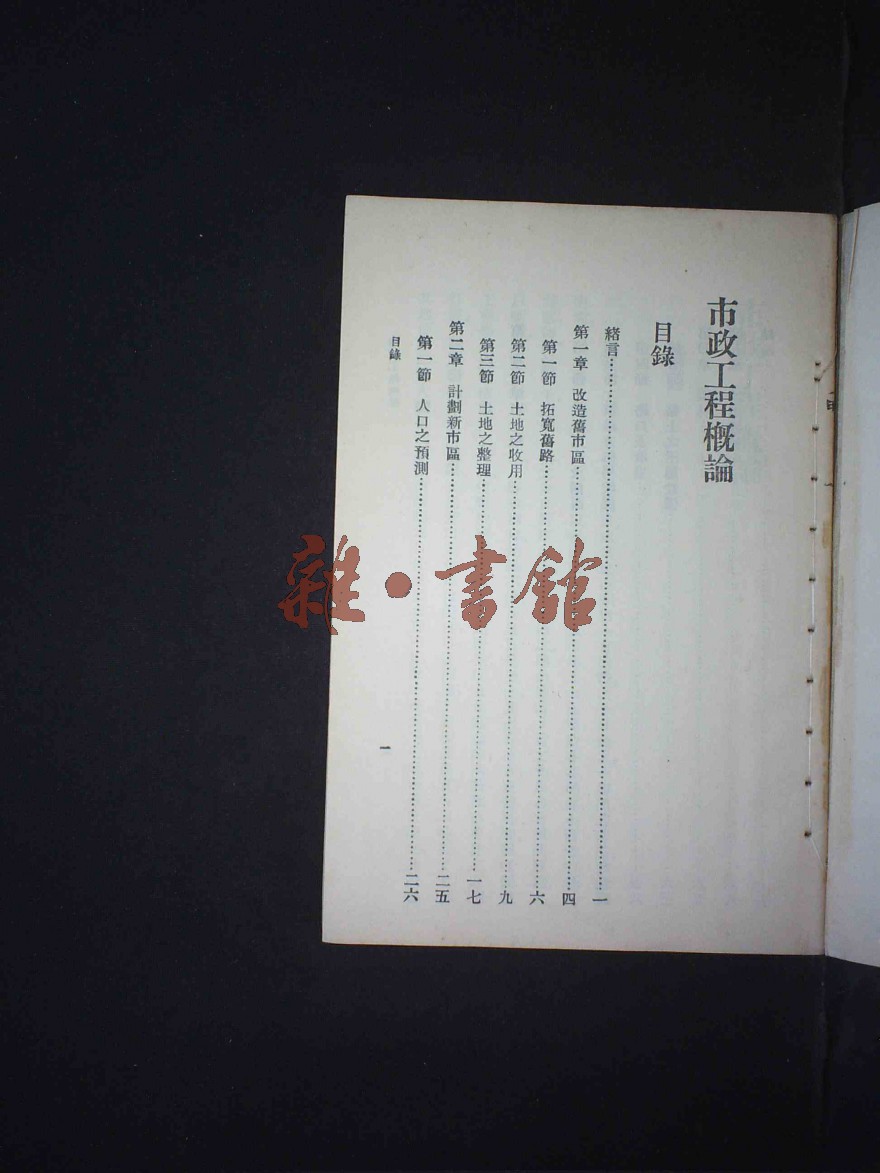 市政工程概論
目錄
緒言……一
第一章 改造舊市區……四
第一節 拓寬舊路……六
第二節 土地之收用……九
第三節 土地之整理……一七
第二章 計劃新市區……二五
第一節 人口之預測……二六
目錄
一
雜·書館